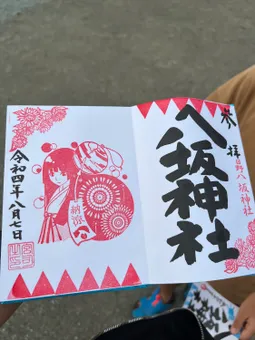 参拝
八坂神社
日野八坂神社
納涼
令和四年八月七日